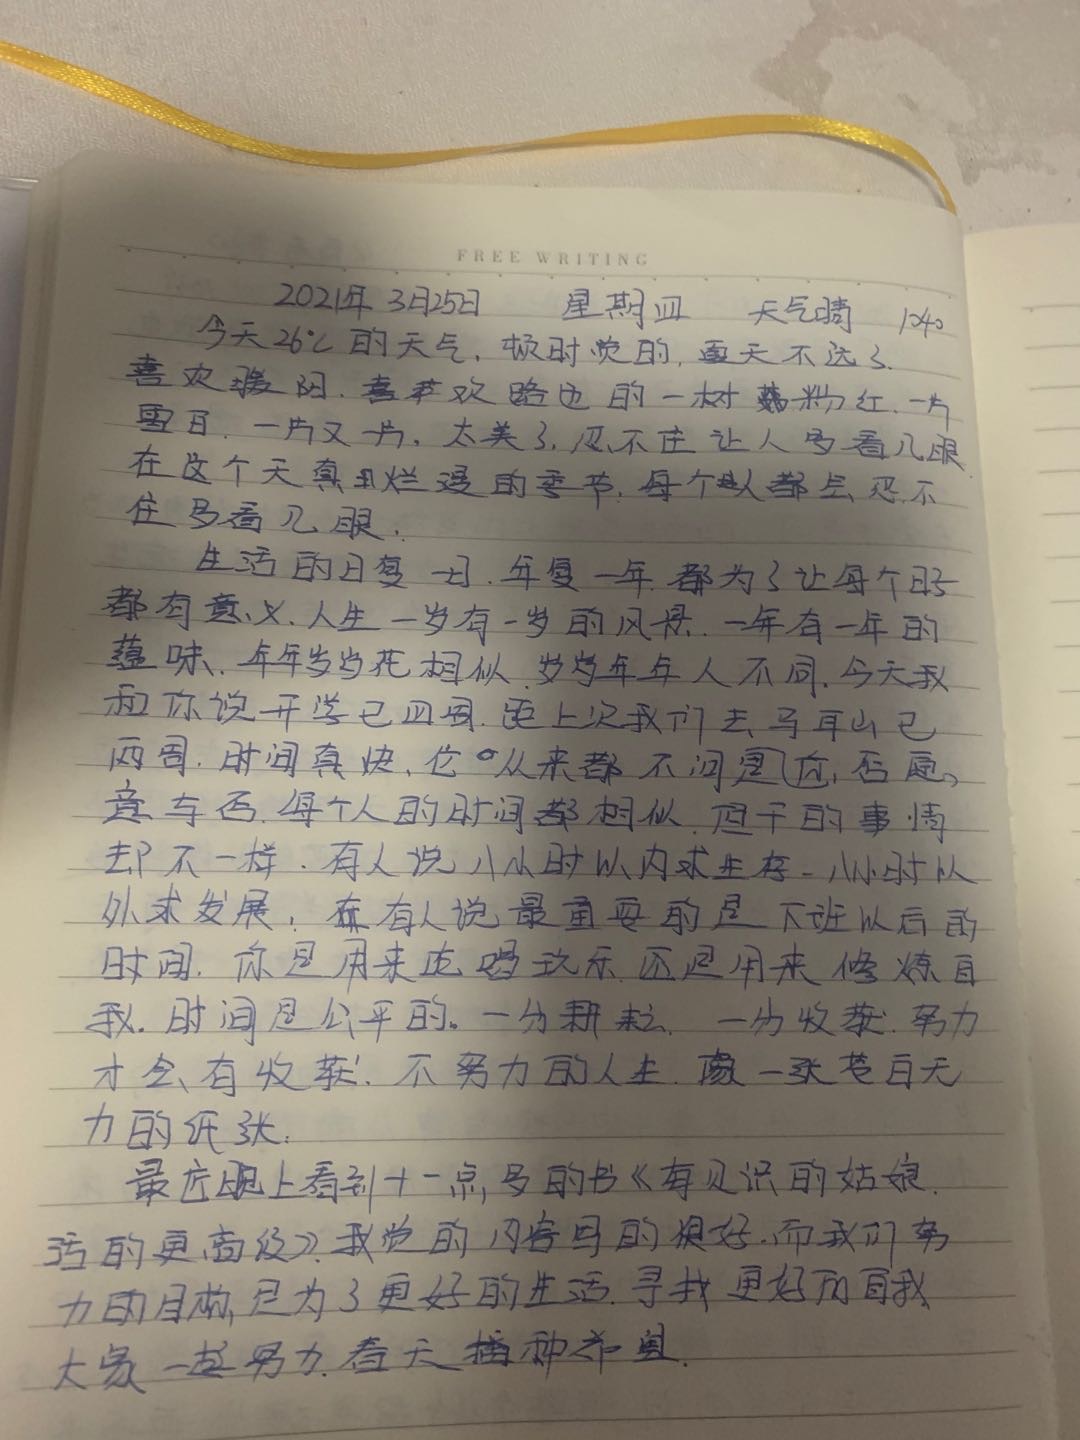 FREE WRITING
2021年 3月25日 星期四 天气晴
今天26℃的天气,顿时觉的,夏天不远了.
喜欢暖阳.喜欢路边的一树粉红.一片
雪白.一片又一片.太美了,忍不住让人多看几眼
在这个天真烂漫的季节,每个人都会忍不
住多看几眼.
生活的日复一日.年复一年.都为了让每个日子
都有意义.人生一岁有一岁的风景.一年有一年的
蕴味.年年岁岁花相似.岁岁年年人不同.今天我
和你说开学已四周.距上次我们去马耳山已
两周.时间真快,它从来都不问是否愿
意与否.每个人的时间都相似.但干的事情
却不一样.有人说八小时以内求生存-八小时以
外求发展.有人说最重要的是下班以后的
时间.你是用来吃喝玩乐还是用来修炼自
我.时间是公平的。一分耕耘.一分收获.努力
才会有收获.不努力的人生.像一张苍白无
力的纸张.
最近晚上看到十一点多的书《有见识的姑娘.
活的更高级》我觉的内容写的很好.而我们努
力的目标,是为了更好的生活.寻找更好的自我
大家一起努力.春天播种希望.